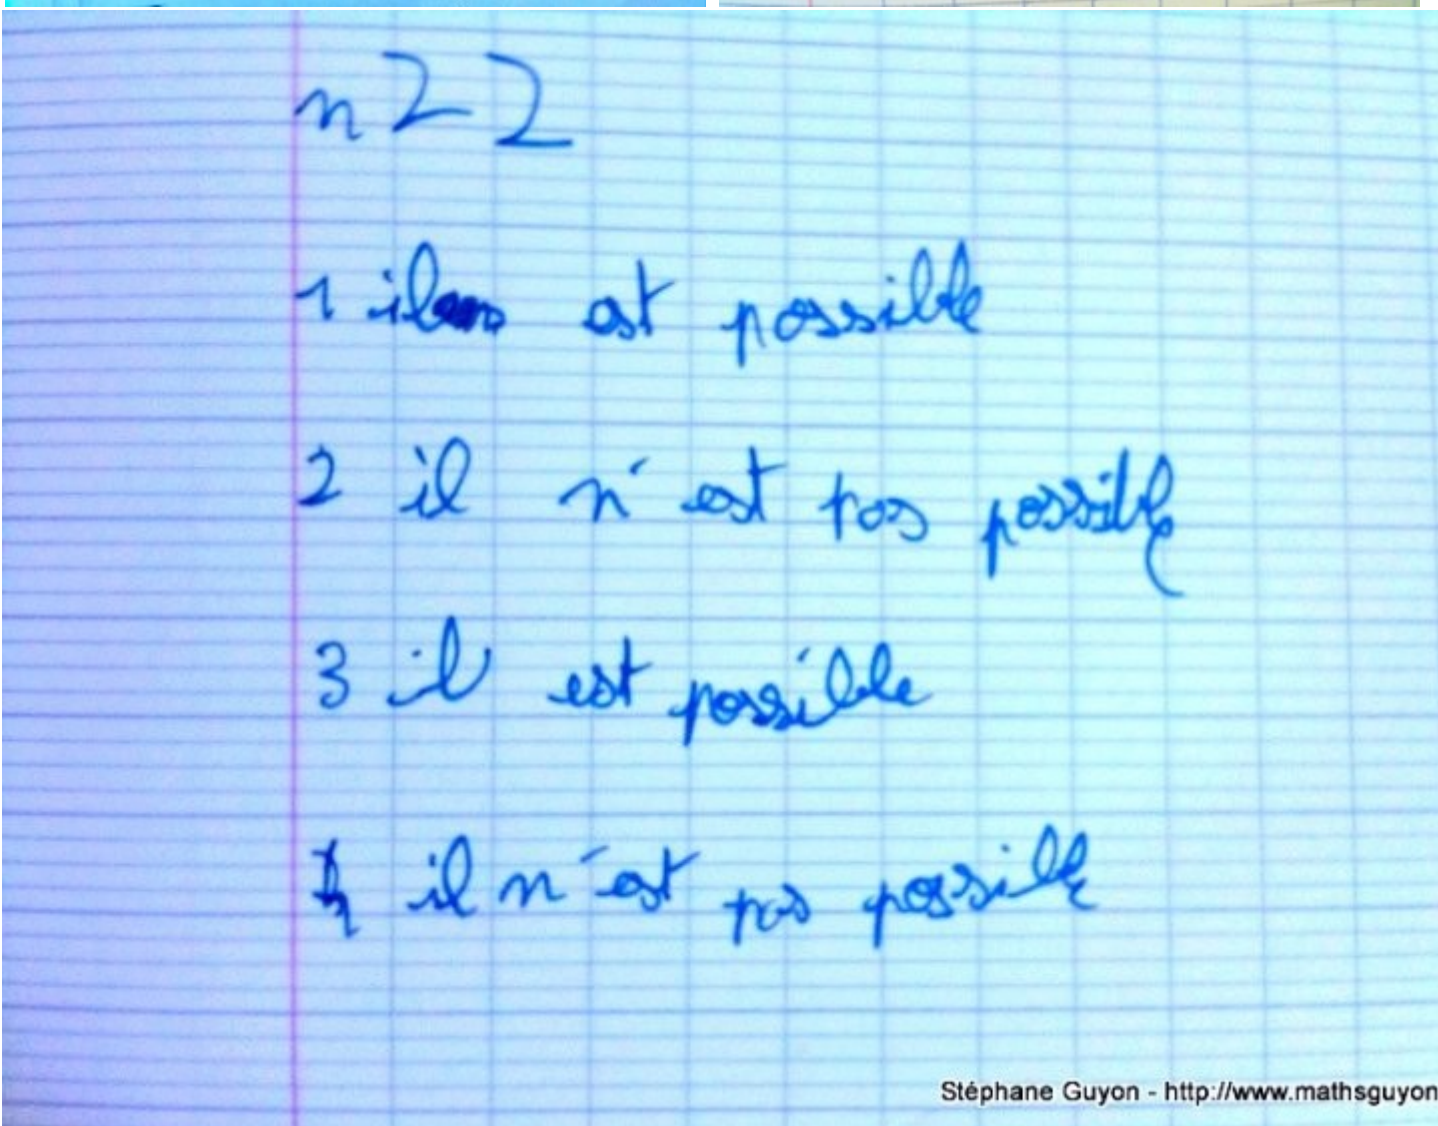 n 22
1 il est possible
2 il n'est pas possible
3 il est possible
4 il n'est pas possible
Stéphane Guyon - http://www.mathsguyon